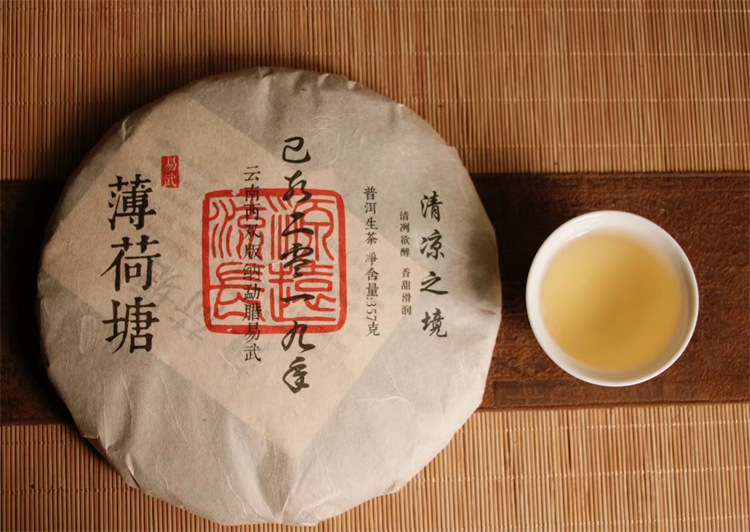 清凉之境
香甜滑润
普洱生茶 净含量:357克
己亥二零一九年
源遠流長
云南西双版纳勐腊易武
易武
薄荷塘